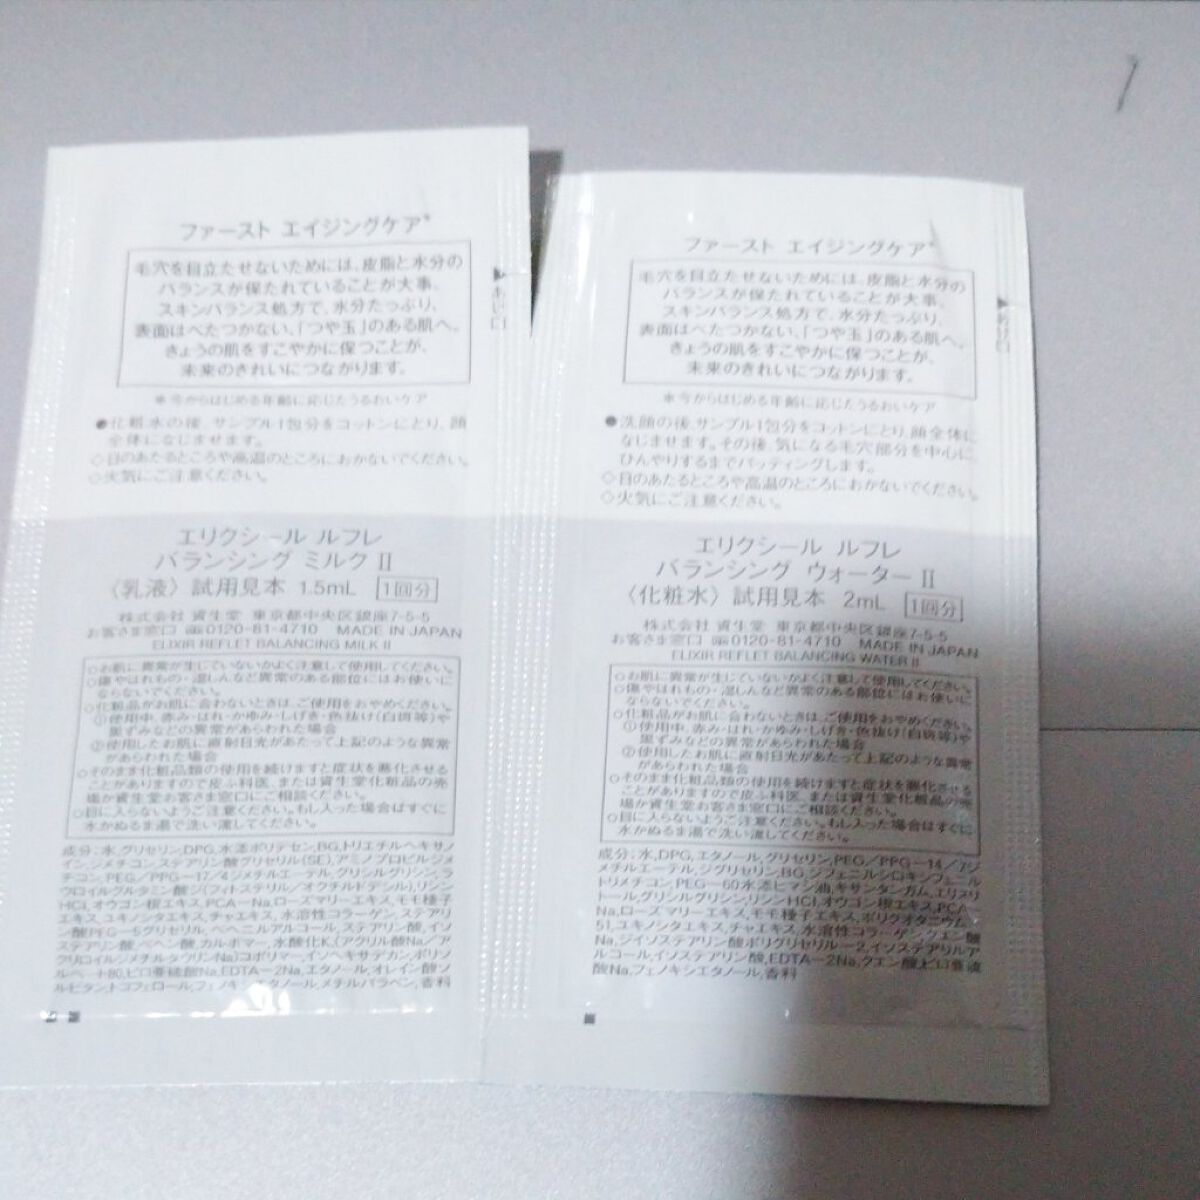 ファースト エイジングケア*
毛穴を目立たせないためには、皮脂と水分の
バランスが保たれていることが大事。
スキンバランス処方で、水分たっぷり、
表面はべたつかない、「つや玉」のある肌へ。
きょうの肌をすこやかに保つことが、
未来のきれいにつながります。
＊今からはじめる年齢に応じたうるおいケア
●化粧水の後、サンプル1包分をコットンにとり、顔
全体になじませます。
◇日のあたるところや高温のところにおかないでください。
◇火気にご注意ください。
エリクシール ルフレ
バランシング ミルク II
〈乳液〉試用見本 1.5mL 1回分
株式会社 資生堂 東京都中央区銀座7-5-5
お客さま窓口 0120-81-4710 MADE IN JAPAN
ELIXIR REFLET BALANCING MILK II
○お肌に異常が生じていないかよく注意して使用してください。
○傷やはれもの・湿しんなど異常のある部位にはお使いに
ならないでください。
○化粧品がお肌に合わないときは、ご使用をおやめください。
①使用中、赤み・はれ・かゆみ・しげき・色抜け(白斑等)や
黒ずみなどの異常があらわれた場合
②使用したお肌に直射日光があたって上記のような異常
があらわれた場合
○そのまま化粧品類の使用を続けますと症状を悪化させる
ことがありますので皮ふ科医、または資生堂化粧品の売
場か資生堂お客さま窓口にご相談ください。
○目に入らないようご注意ください。もし入った場合はすぐに
水かぬるま湯で洗い流してください。
成分:水,グリセリン,DPG,水添ポリデセン,BG,トリエチルヘキサノ
イン,ジメチコン,ステアリン酸グリセリル(SE),アミノプロピルジメ
チコン,PEG/PPG-17/4ジメチルエーテル,グリシルグリシン,ラ
ウロイルグルタミン酸ジ(フィトステリル/オクチルドデシル),リシン
HCl,オウゴン根エキス,PCA-Na,ローズマリーエキス,モモ種子
エキス,ユキノシタエキス,チャエキス,水溶性コラーゲン,ステアリン
酸PEG-5グリセリル,ベヘニルアルコール,ステアリン酸,イソ
ステアリン酸,ベヘン酸,カルボマー,水酸化K,(アクリル酸Na/ア
クリロイルジメチルタウリンNa)コポリマー,イソヘキサデカン,ポリソ
ルベート80,ピロ亜硫酸Na,EDTA-2Na,エタノール,オレイン酸ソ
ルビタン,トコフェロール,フェノキシエタノール,メチルパラベン,香料
ファースト エイジングケア*
毛穴を目立たせないためには、皮脂と水分の
バランスが保たれていることが大事。
スキンバランス処方で、水分たっぷり、
表面はべたつかない、「つや玉」のある肌へ。
きょうの肌をすこやかに保つことが、
未来のきれいにつながります。
＊今からはじめる年齢に応じたうるおいケア
●洗顔の後、サンプル1包分をコットンにとり、顔全体に
なじませます。その後、気になる毛穴部分を中心に、
ひんやりするまでパッティングします。
◇日のあたるところや高温のところにおかないでください。
◇火気にご注意ください。
エリクシール ルフレ
バランシング ウォーター II
〈化粧水〉試用見本 2mL 1回分
株式会社 資生堂 東京都中央区銀座7-5-5
お客さま窓口 0120-81-4710 MADE IN JAPAN
ELIXIR REFLET BALANCING WATER II
○お肌に異常が生じていないかよく注意して使用してください。
○傷やはれもの・湿しんなど異常のある部位にはお使いに
ならないでください。
○化粧品がお肌に合わないときは、ご使用をおやめください。
①使用中、赤み・はれ・かゆみ・しげき・色抜け(白斑等)や
黒ずみなどの異常があらわれた場合
②使用したお肌に直射日光があたって上記のような異常
があらわれた場合
○そのまま化粧品類の使用を続けますと症状を悪化させる
ことがありますので皮ふ科医、または資生堂化粧品の売
場か資生堂お客さま窓口にご相談ください。
○目に入らないようご注意ください。もし入った場合はすぐに
水かぬるま湯で洗い流してください。
成分:水,DPG,エタノール,グリセリン,PEG/PPG-14/7ジ
メチルエーテル,ジグリセリン,BG,ジフェニルシロキシフェニル
トリメチコン,PEG-60水添ヒマシ油,キサンタンガム,エリスリ
トール,グリシルグリシン,リシンHCl,オウゴン根エキス,PCA-
Na,ローズマリーエキス,モモ種子エキス,ポリクオタニウム-
51,ユキノシタエキス,チャエキス,水溶性コラーゲン,クエン酸
Na,ジイソステアリン酸ポリグリセリル-2,イソステアリルア
ルコール,イソステアリン酸,EDTA-2Na,クエン酸,ピロ亜硫
酸Na,フェノキシエタノール,香料